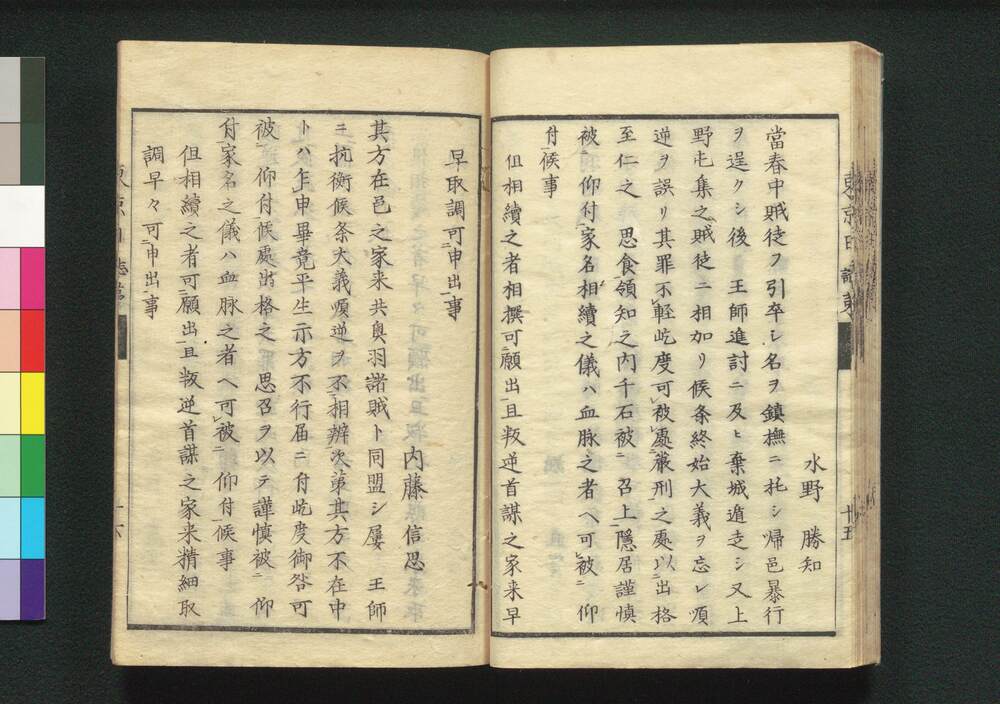 水野勝知
當春中賊徒ヲ引卒シ名ヲ鎮撫ニ托シ帰邑暴行
ヲ逞クシ後王師進討ニ及ヒ棄城遁走シ又上
野屯集之賊徒ニ相加リ候条終始大義ヲ忘レ順
逆ヲ誤リ其罪不軽屹度可被處嚴刑之處以出格
至仁之思食領知之内千石被召上隠居謹慎
被仰付家名相續之儀ハ血脉之者へ可被仰
付候事
但相續之者相撰可願出且叛逆首謀之家来早
早取調可申出事
内藤信思
其方在邑之家来共奥羽諸賊ト同盟シ屢王師
ニ抗衡候条大義順逆ヲ不相辨次第其方不在中
トハ乍申畢竟平生示方不行届ニ付屹度御咎可
被仰付候處出格之思召ヲ以テ謹慎被仰
付家名之儀ハ血脉之者へ可被仰付候事
但相續之者可願出且叛逆首謀之家来精細取
調早々可申出事